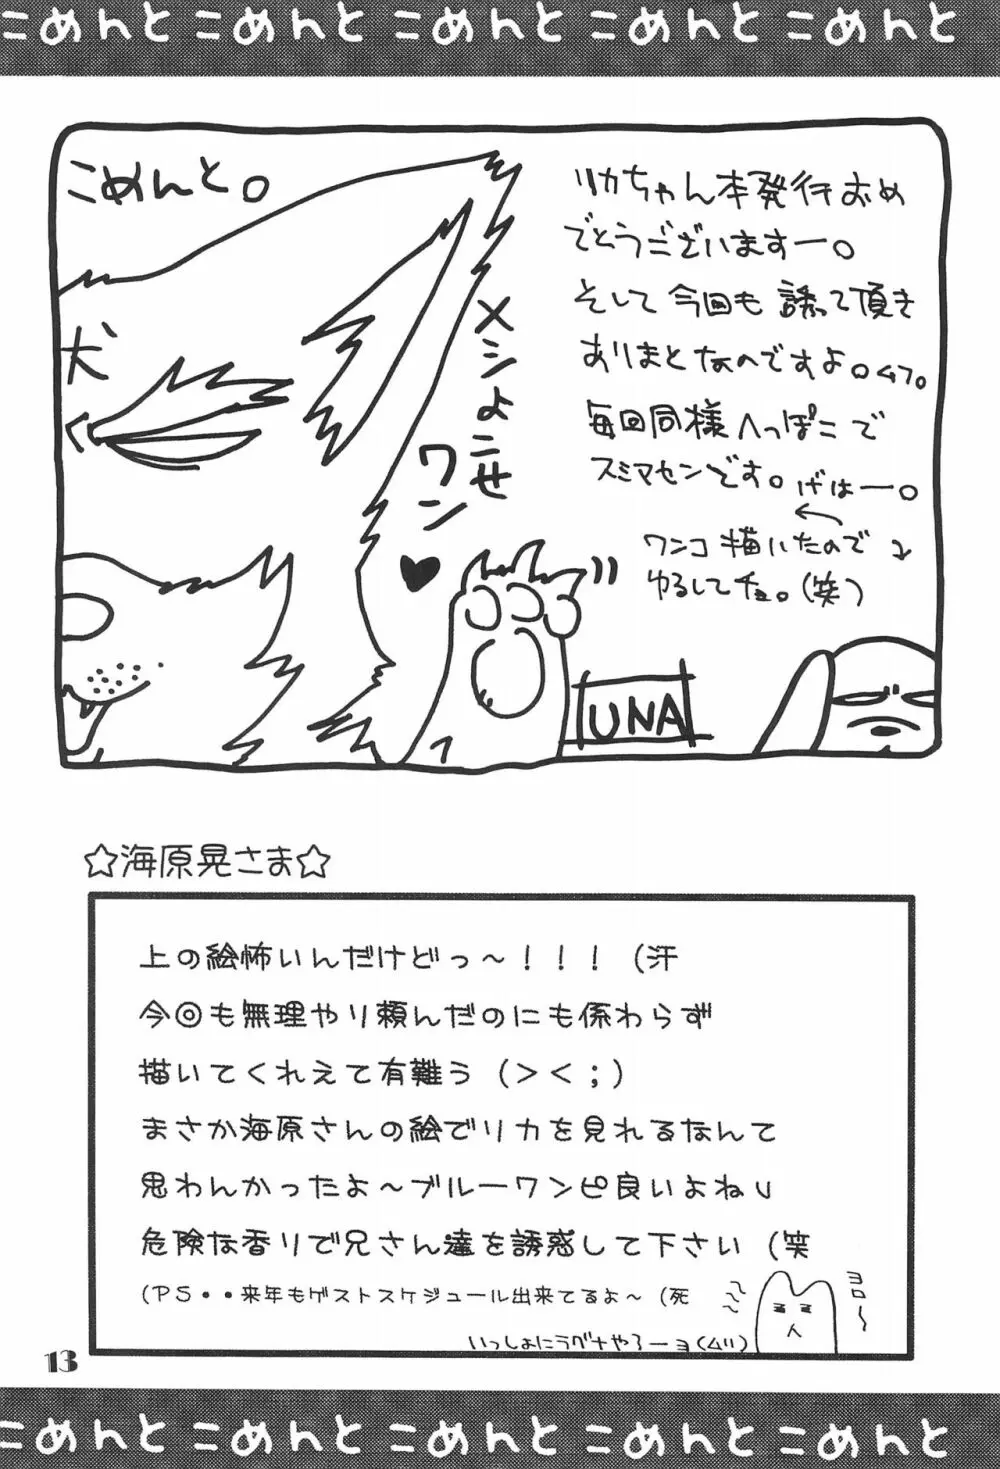 こめんと こめんと こめんと こめんと こめんと
こめんと。
犬
メシよこせ
ワン
リカちゃん本発行おめ
でとうございますー。
そして今回も誘って頂き
ありまとなのですよ。ムフ。
毎回同様へっぽこで
スミマセンです。げはー。
ワンコ描いたので
ゆるしてチョ。(笑)
UNA
☆海原晃さま☆
上の絵怖いんだけどっ〜！！！（汗
今回も無理やり頼んだのにも係わらず
描いてくれえて有難う（＞＜；）
まさか海原さんの絵でリカを見れるなんて
思わんかったよ〜ブルーワンピ良いよね
危険な香りで兄さん達を誘惑して下さい（笑
（ＰＳ・・来年もゲストスケジュール出来てるよ〜（死
いっしょにラグナやろーヨ(ムリ)
ヨロ〜
13
こめんと こめんと こめんと こめんと こめんと